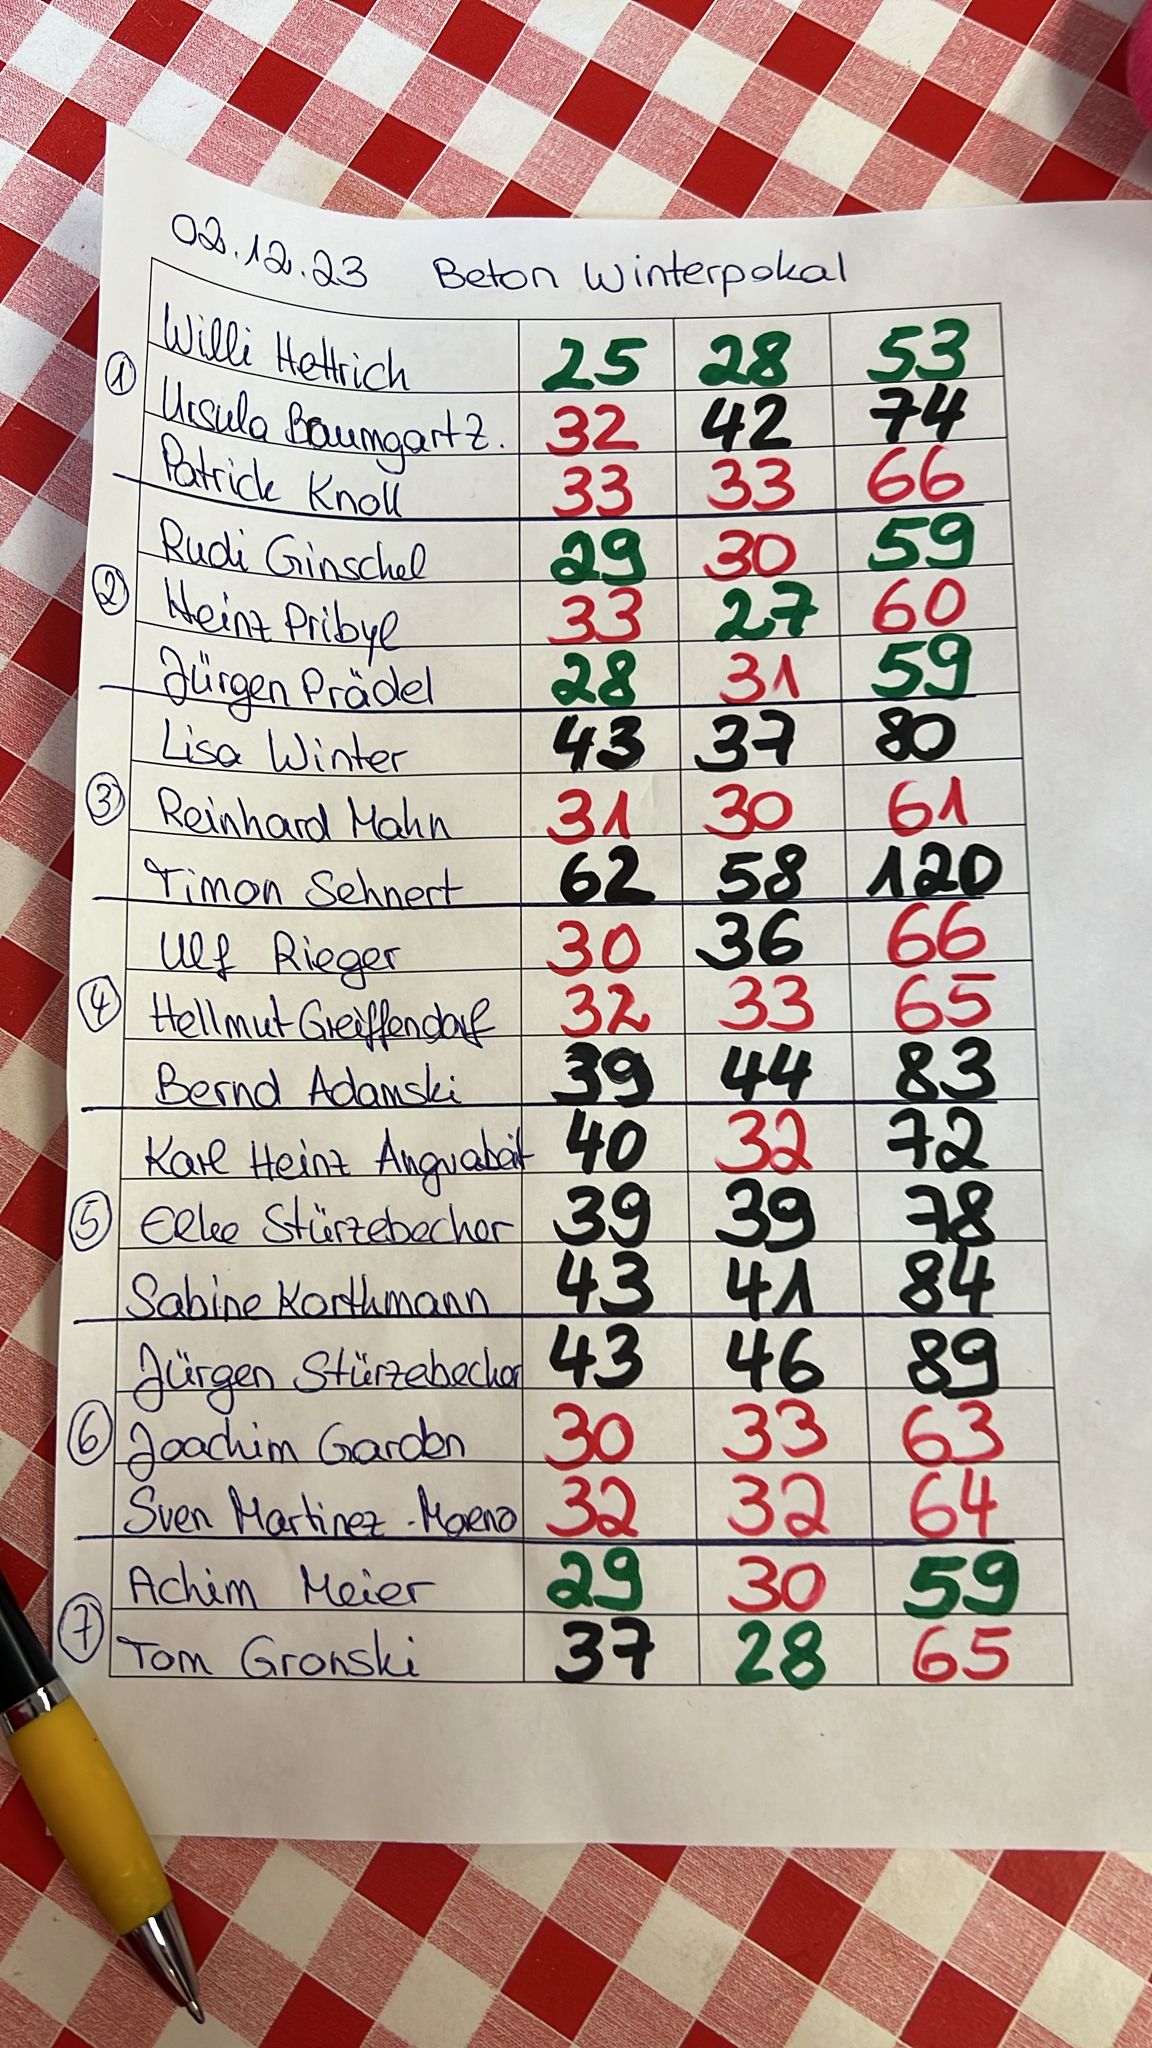 02.12.23 Beton Winterpokal
Willi Hettrich 25 28 53
①
Ursula Baumgartz. 32 42 74
Patrick Knoll 33 33 66
Rudi Ginschel 29 30 59
②
Heinz Pribyl 33 27 60
Jürgen Prädel 28 31 59
Lisa Winter 43 37 80
③ Reinhard Mahn 31 30 61
Timon Sehnert 62 58 120
Ulf Rieger 30 36 66
④ Hellmut Greiffendorf 32 33 65
Bernd Adamski 39 44 83
Karl Heinz 40 32 72
⑤ Elke Stürzebecher 39 39 78
Sabine Korthmann 43 41 84
Jürgen Stürzebecher 43 46 89
⑥ Joachim Garden 30 33 63
Sven Martinez-Moreno 32 32 64
Achim Meier 29 30 59
⑦ Tom Gronski 37 28 65